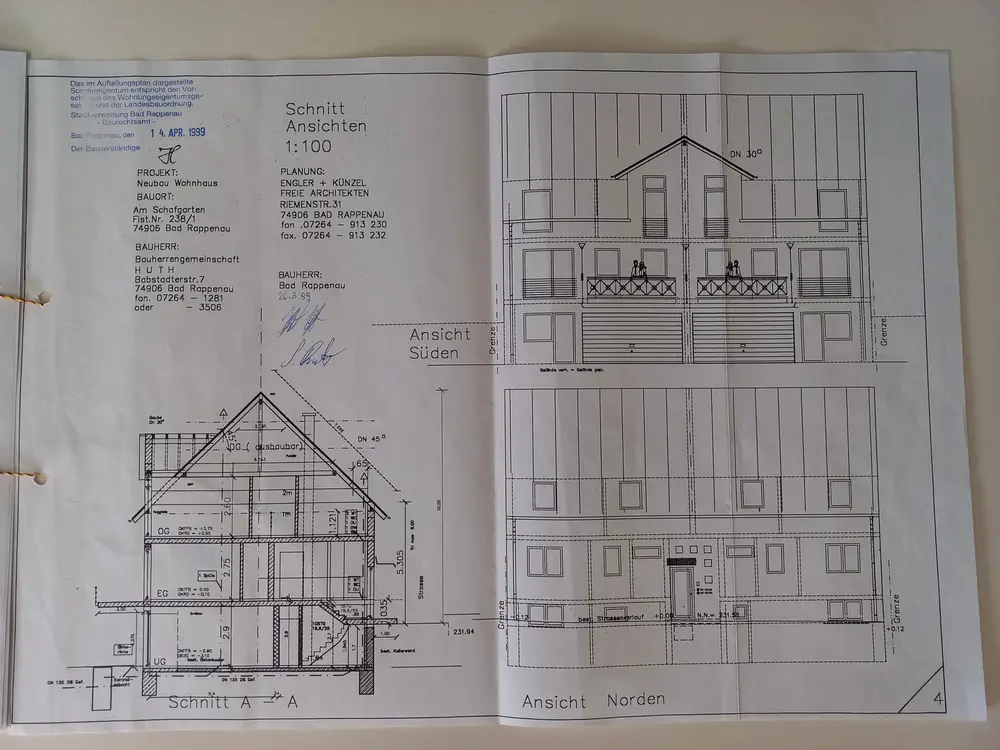 Das im Aufteilungsplan dargestellte
Sondereigentum entspricht den Vor-
des Wohnungseigentumsge-
und der Landesbauordnung.
Stadtverwaltung Bad Rappenau
- Baurechtsamt -
Bad Rappenau, den 14. APR. 1999
Der Bauverständige
PROJEKT:
Neubau Wohnhaus
BAUORT:
Am Schafgarten
Flst.Nr. 238/1
74906 Bad Rappenau
BAUHERR:
Bauherrengemeinschaft
H U T H
Babstadterstr.7
74906 Bad Rappenau
fon. 07264 - 1281
oder - 3506
Schnitt
Ansichten
1:100
PLANUNG:
ENGLER + KÜNZEL
FREIE ARCHITEKTEN
RIEMENSTR.31
74906 BAD RAPPENAU
fon .07264 - 913 230
fax. 07264 - 913 232
BAUHERR:
Bad Rappenau
26.3.99
DN 30°
Ansicht
Süden
Grenze
Grenze
Gelände vorh. = Gelände gepl.
Gaube
Dn 30°
DG ( ausbaubar)
DN 45°
1.65
2m
1m
2.60
1.121
OG
EG
UG
2.75
2.9
5.305
Strasse
231.94
1.00
best. Kellerwand
DN 125 2% Gef.
DN 125 2% Gef.
Schnitt A - A
Grenze
Grenze
+0.12
best. Strassenverlauf
+0.12
Ansicht Norden
4